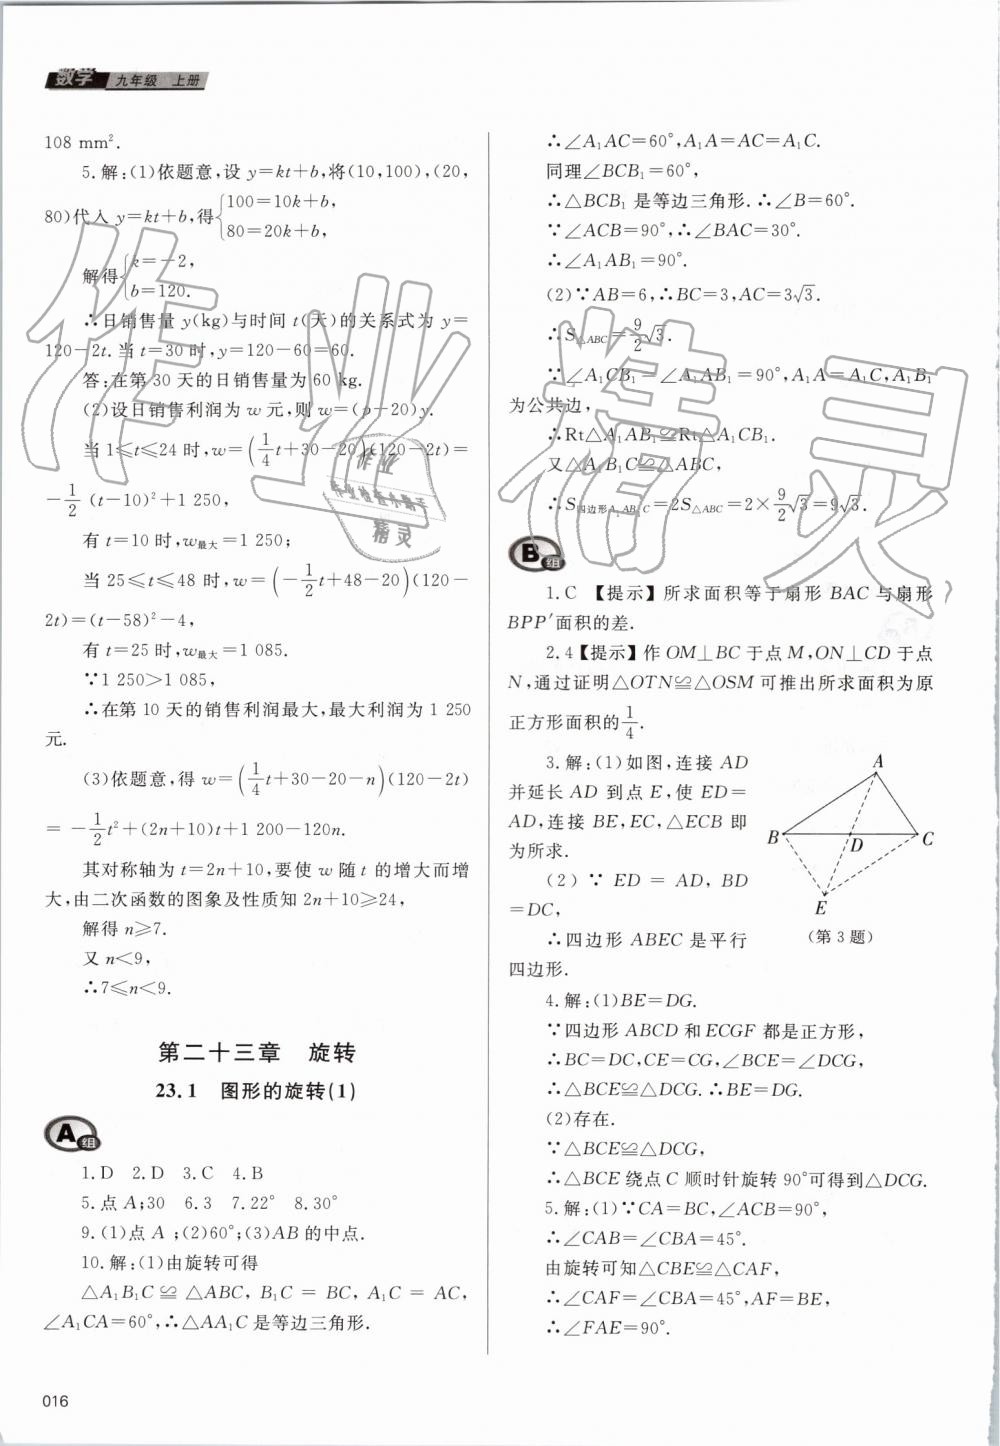 数学 九年级 上册
108 mm².
5.解:(1)依题意,设 y=kt+b,将(10,100),(20,
80)代入 y=kt+b,得{100=10k+b,
80=20k+b,
解得{k=-2,
b=120.
∴日销售量 y(kg)与时间 t(天)的关系式为 y=
120-2t.当 t=30 时,y=120-60=60.
答:在第 30 天的日销售量为 60 kg.
(2)设日销售利润为 w 元,则 w=(p-20)y.
当 1≤t≤24 时,w=(1/4t+30-20)(120-2t)=
-1/2(t-10)²+1 250,
有 t=10 时,w最大=1 250;
当 25≤t≤48 时,w=(-1/2t+48-20)(120-
2t)=(t-58)²-4,
有 t=25 时,w最大=1 085.
∵1 250>1 085,
∴在第 10 天的销售利润最大,最大利润为 1 250
元.
(3)依题意,得 w=(1/4t+30-20-n)(120-2t)
=-1/2t²+(2n+10)t+1 200-120n.
其对称轴为 t=2n+10,要使 w 随 t 的增大而增
大,由二次函数的图象及性质知 2n+10≥24,
解得 n≥7.
又 n<9,
∴7≤n<9.
第二十三章 旋转
23.1 图形的旋转(1)
A组
1.D 2.D 3.C 4.B
5.点 A;30 6.3 7.22° 8.30°
9.(1)点 A ;(2)60°;(3)AB 的中点.
10.解:(1)由旋转可得
△A₁B₁C≌△ABC, B₁C=BC, A₁C=AC,
∠A₁CA=60°,∴△AA₁C 是等边三角形.
∴∠A₁AC=60°,A₁A=AC=A₁C.
同理∠BCB₁=60°,
∴△BCB₁ 是等边三角形.∴∠B=60°.
∵∠ACB=90°,∴∠BAC=30°.
∴∠A₁AB₁=90°.
(2)∵AB=6,∴BC=3,AC=3√3.
∴S△ABC=9/2√3.
∵∠A₁CB₁=∠A₁AB₁=90°,A₁A=A₁C,A₁B₁
为公共边,
∴Rt△A₁AB₁≌Rt△A₁CB₁.
又△A₁B₁C≌△ABC,
∴S四边形A₁AB₁C=2S△ABC=2×9/2√3=9√3.
B组
1.C 【提示】所求面积等于扇形 BAC 与扇形
BPP′面积的差.
2.4【提示】作 OM⊥BC 于点 M,ON⊥CD 于点
N,通过证明△OTN≌△OSM 可推出所求面积为原
正方形面积的1/4.
3.解:(1)如图,连接 AD
并延长 AD 到点 E,使 ED=
AD,连接 BE,EC,△ECB 即
为所求.
(2)∵ED=AD, BD
=DC,
∴四边形 ABEC 是平行
四边形.
A
B
D
C
E
(第 3 题)
4.解:(1)BE=DG.
∵四边形 ABCD 和 ECGF 都是正方形,
∴BC=DC,CE=CG,∠BCE=∠DCG.
∴△BCE≌△DCG.∴BE=DG.
(2)存在.
∵△BCE≌△DCG,
∴△BCE 绕点 C 顺时针旋转 90°可得到△DCG.
5.解:(1)∵CA=BC,∠ACB=90°,
∴∠CAB=∠CBA=45°.
由旋转可知△CBE≌△CAF,
∴∠CAF=∠CBA=45°,AF=BE,
∴∠FAE=90°.
016
作业精灵
作业
作业检查小助手
精灵